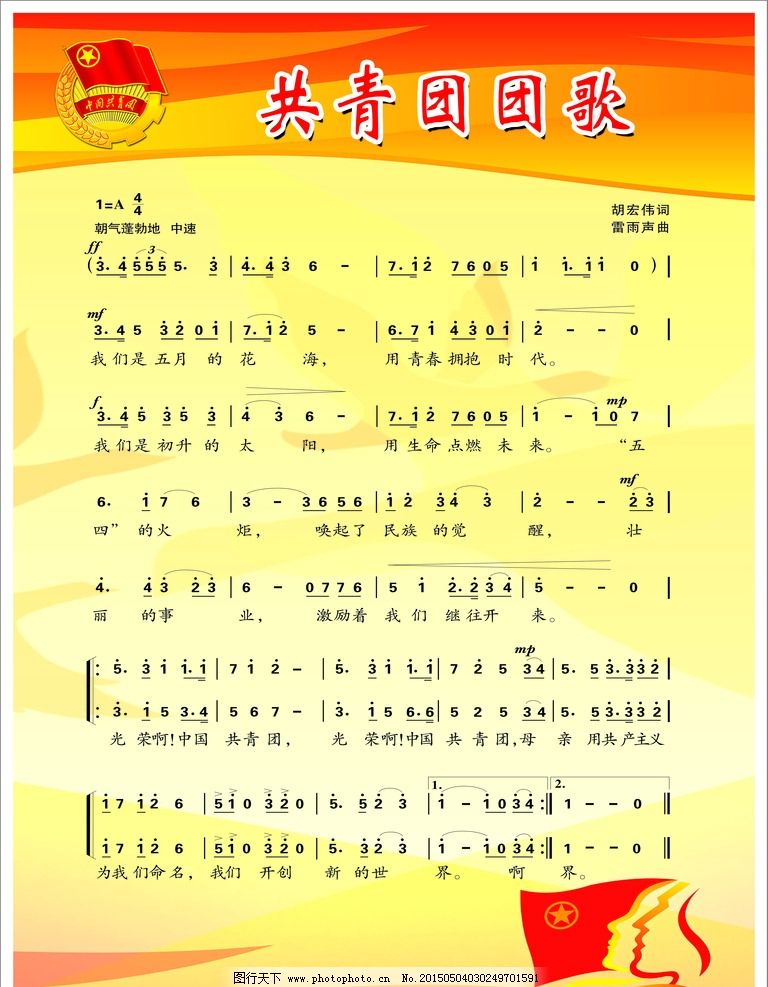 中国共青团
共青团团歌
1=A 4/4
胡宏伟词
朝气蓬勃地 中速
雷雨声曲
ff
3
(3. 4 5 5 5 5. 3 | 4. 4 3 6 – | 7. 1 2 7 6 0 5 | 1 1. 1 1 0 ) |
mf
3. 4 5 3 2 0 1 | 7. 1 2 5 – | 6. 7 1 4 3 0 1 | 2 – – 0 |
我们是五月的花 海, 用青春拥抱时代。
f
mp
3. 4 5 3 5 3 | 4 3 6 – | 7. 1 2 7 6 0 5 | 1 – 1 0 7 |
我们是初升的太 阳, 用生命点燃未来。 “五
mf
6. 1 7 6 | 3 – 3 6 5 6 | 1 2 3 4 4 3 | 2 – – 2 3 |
四”的火 炬, 唤起了民族的觉 醒, 壮
4. 4 3 2 3 | 6 – 0 7 7 6 | 5 1 2. 2 3 4 | 5 – – 0 |
丽 的事 业, 激励着我们继往开 来。
mp
5. 3 1 1. 1 | 7 1 2 – | 5. 3 1 1. 1 | 7 2 5 3 4 | 5. 5 3. 3 3 2 |
3. 1 5 3. 4 | 5 6 7 – | 3. 1 5 6. 6 | 5 2 5 3 4 | 5. 5 3. 3 3 2 |
光荣啊!中国 共青团, 光荣啊!中国共青团,母 亲用共产主义
1.
2.
1 7 1 2 6 | 5 1 0 3 2 0 | 5. 5 2 3 | 1 – 1 0 3 4 :| 1 – – 0 |
1 7 1 2 6 | 5 1 0 3 2 0 | 5. 5 2 3 | 1 – 1 0 3 4 :| 1 – – 0 |
为我们命名,我们开创 新的世 界。 啊 界。
图行天下 www.photophoto.cn No.20150504030249701591